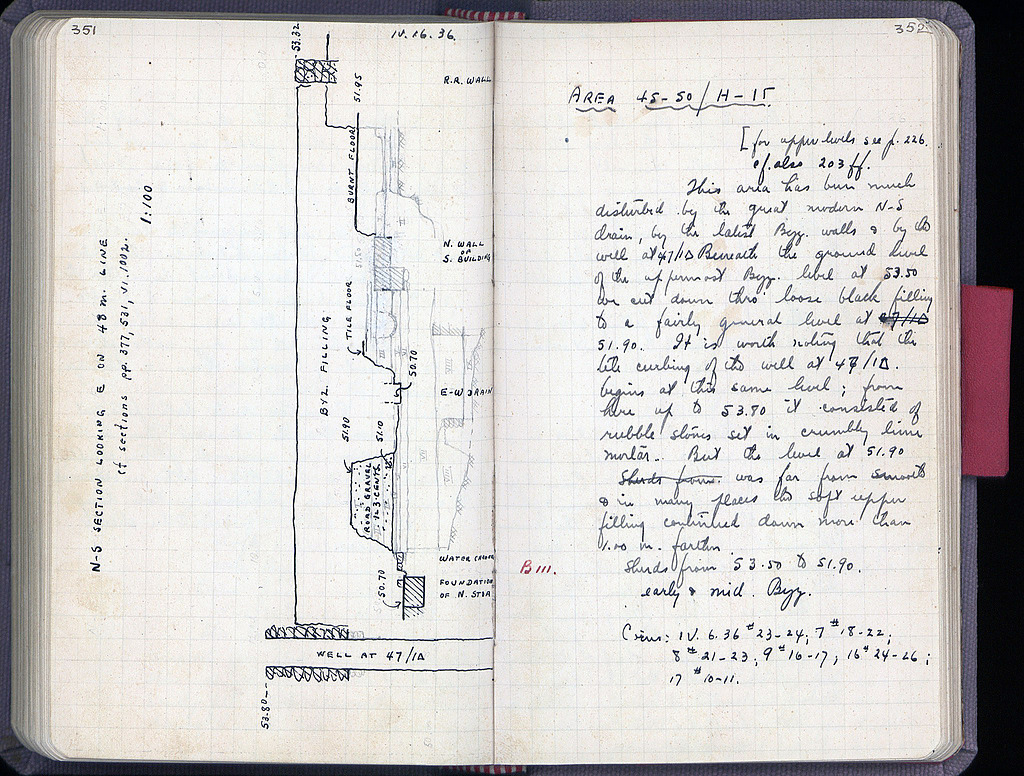 351
IV.16.36.
N-S SECTION LOOKING E ON 48 m. LINE
cf sections pp. 377, 531, VI.1002.
1:100
53.32
R.R. WALL
51.95
BURNT FLOOR
N. WALL
OF
S. BUILDING
51.50
TILE FLOOR
BYZ. FILLING
50.70
E-W DRAIN
51.90
51.10
ROAD GRAVEL
1 & 3 CENTS.
WATER
50.70
FOUNDATION
OF N. STOA
WELL AT 47/ΙΔ
53.80
352
AREA 45-50/H-15
[for upper levels see p. 226.
cf. also 203 ff.
This area has been much
disturbed by the great modern N-S
drain, by the latest Byz. walls & by the
well at 47/ΙΔ Beneath the ground level
of the uppermost Byz. level at 53.50
we cut down thro' loose black filling
to a fairly general level at 47/ΙΔ
51.90. It is worth noting that the
late curbing of the well at 47/ΙΔ.
begins at this same level; from
here up to 53.80 it consisted of
rubble stones set in crumbly lime
mortar. But the level at 51.90
Sherds from was far from smooth
& in many places the soft upper
filling continued down more than
1.00 m. farther
B III.
Sherds from 53.50 to 51.90.
early & mid. Byz.
Coins: IV. 6.36 # 23-24; 7 # 18-22;
8 # 21-23, 9 # 16-17, 16 # 24-26;
17 # 10-11.